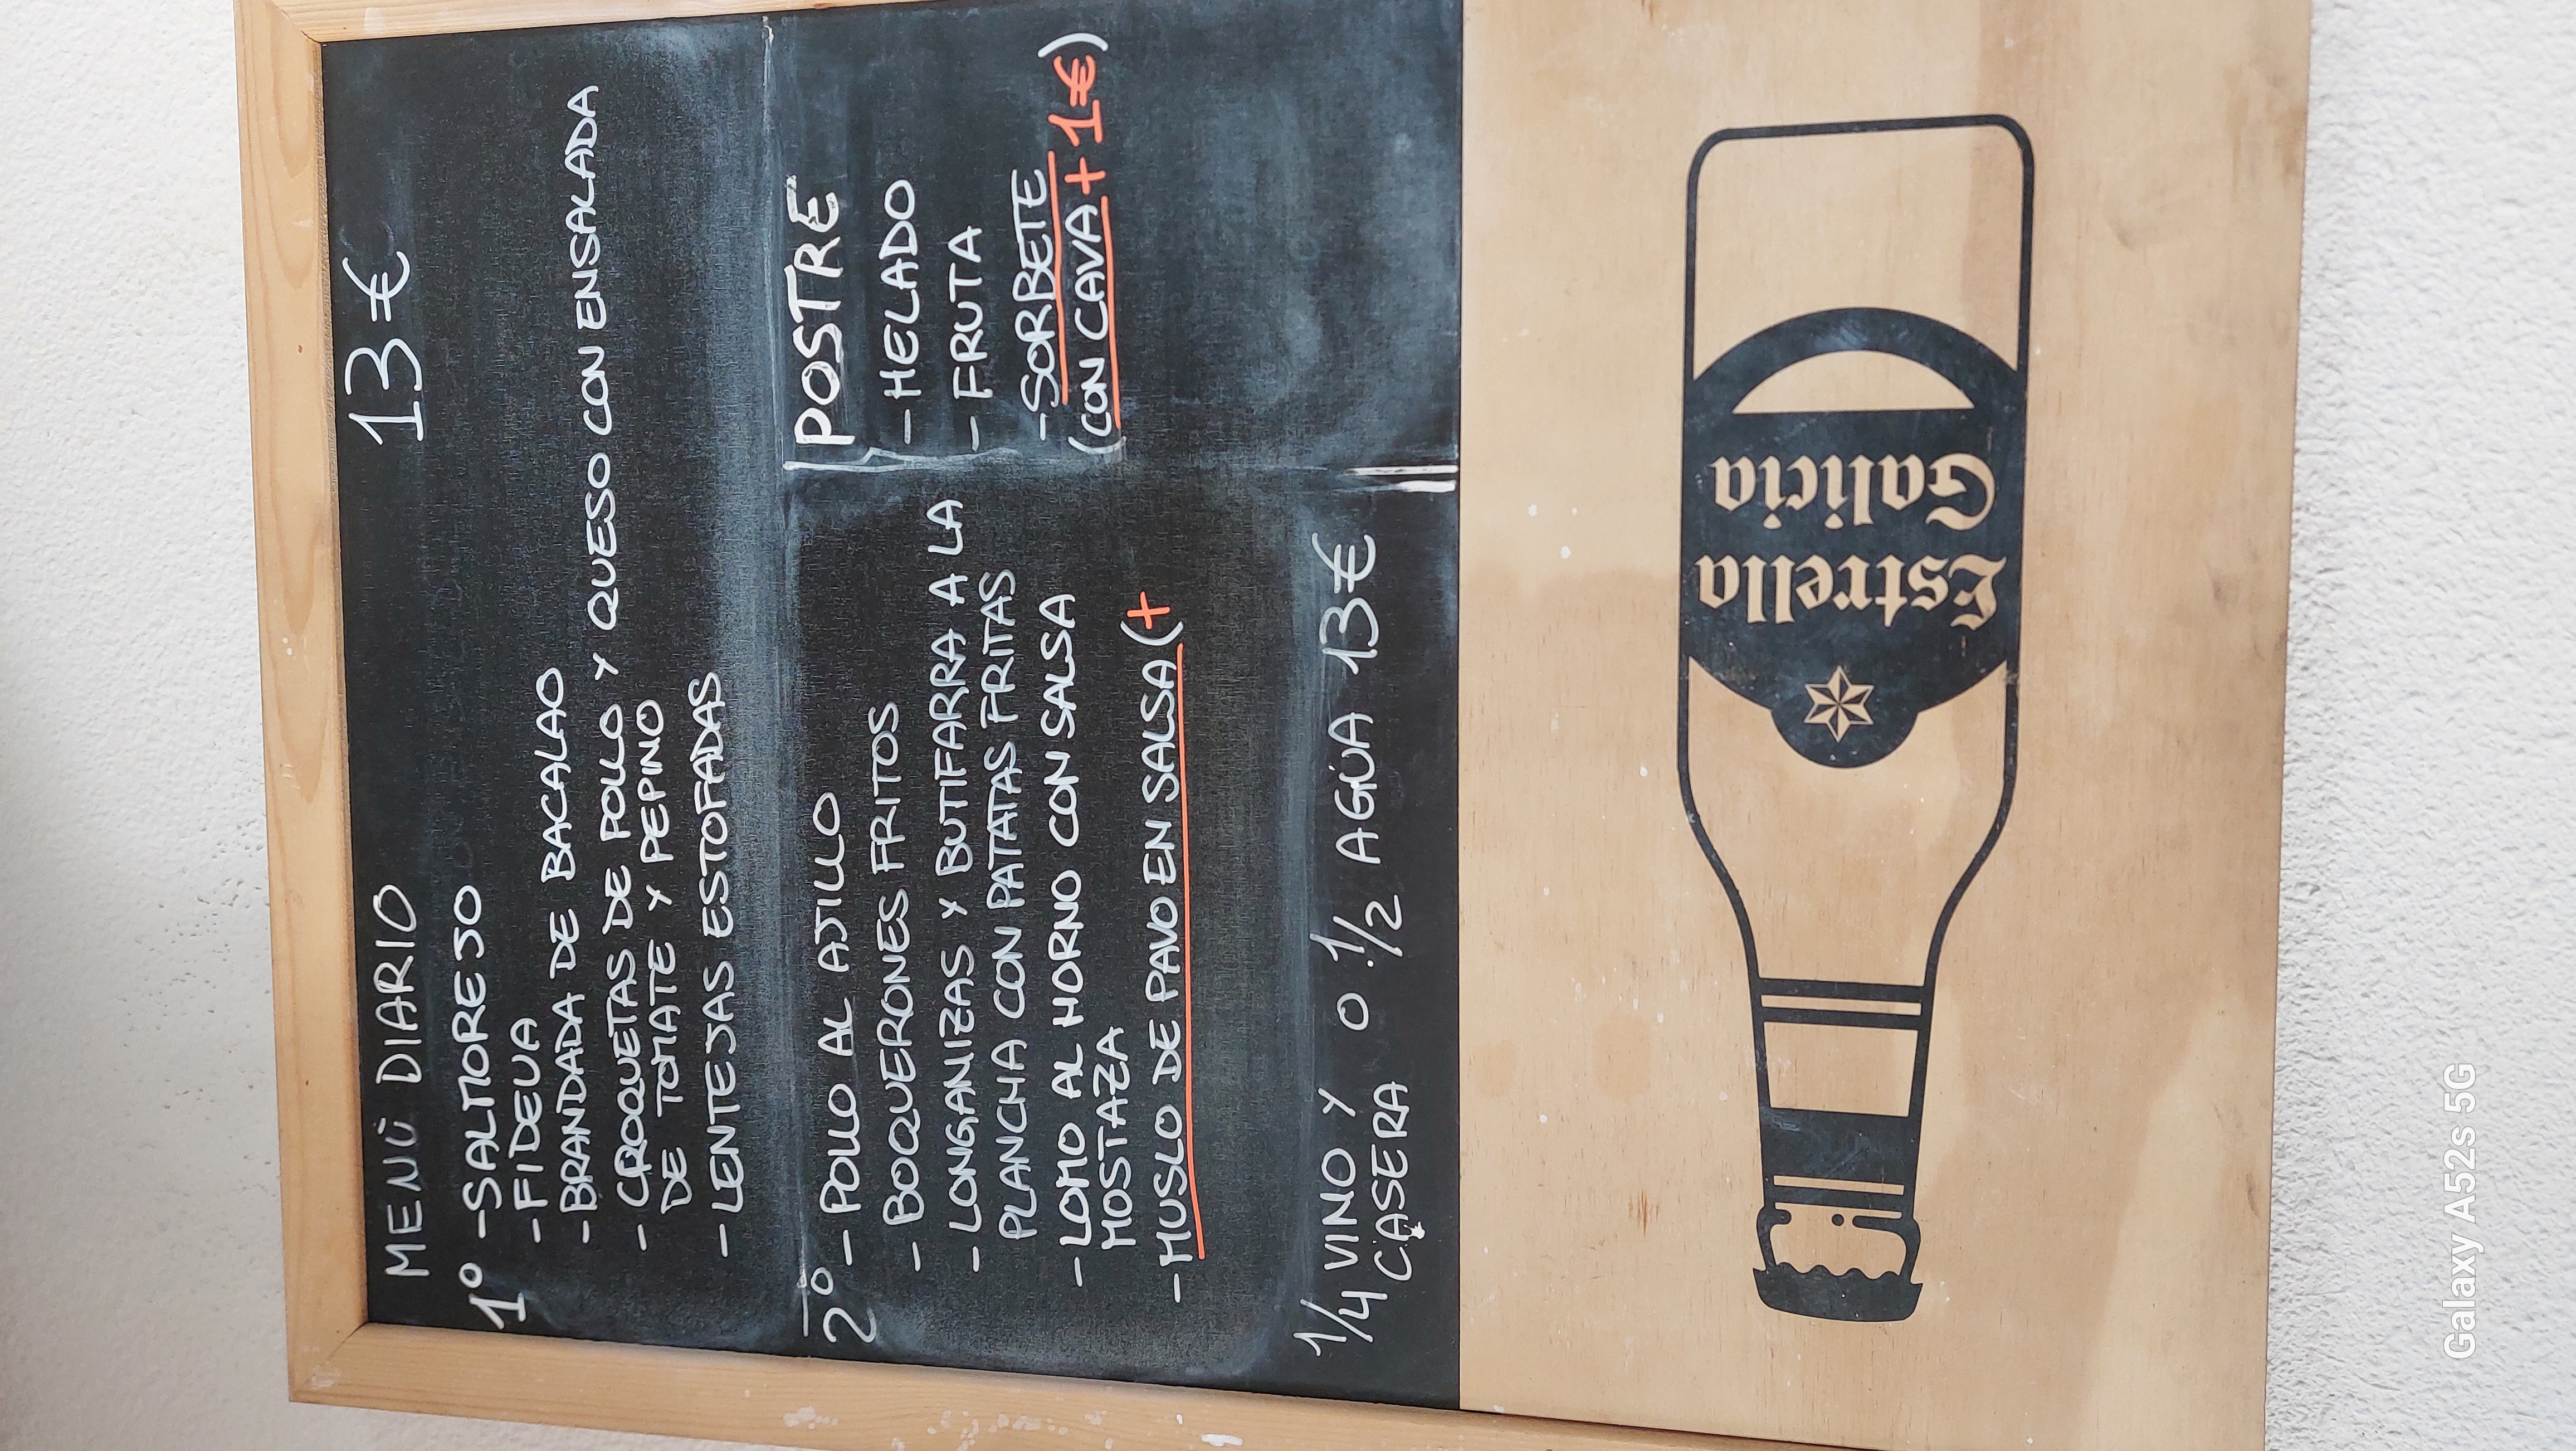 MENÚ DIARIO 13€
1º - SALMOREJO
- FIDEUA
- BRANDADA DE BACALAO
- CROQUETAS DE POLLO Y QUESO CON ENSALADA
DE TOMATE Y PEPINO
- LENTEJAS ESTOFADAS
2º - POLLO AL AJILLO
- BOQUERONES FRITOS
- LONGANIZAS Y BUTIFARRA A LA
PLANCHA CON PATATAS FRITAS
- LOMO AL HORNO CON SALSA
MOSTAZA
- MUSLO DE PAVO EN SALSA (+
POSTRE
- HELADO
- FRUTA
- SORBETE
(CON CAVA + 1€)
1/4 VINO Y O 1/2 AGÜA 13€
CASERA
Estrella
Galicia
Galaxy A52s 5G